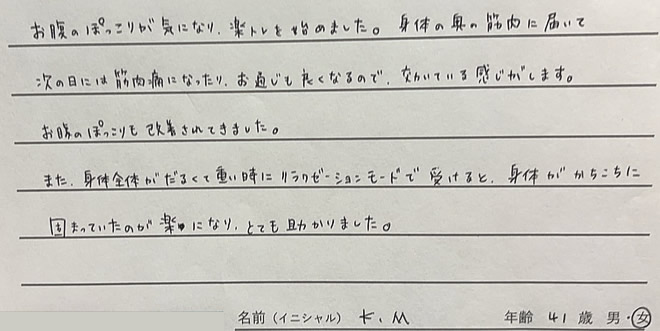 お腹のぽっこりが気になり、楽トレを始めました。身体の奥の筋肉に届いて
次の日には筋肉痛になったり、お通じも良くなるので、効いている感じがします。
お腹のぽっこりも改善されてきました。
また、身体全体がだるくて重い時にリラクゼーションモードで受けると、身体がかちこちに
固まっていたのが楽になり、とても助かりました。
名前（イニシャル） K.M 年齢 41 歳 男・女